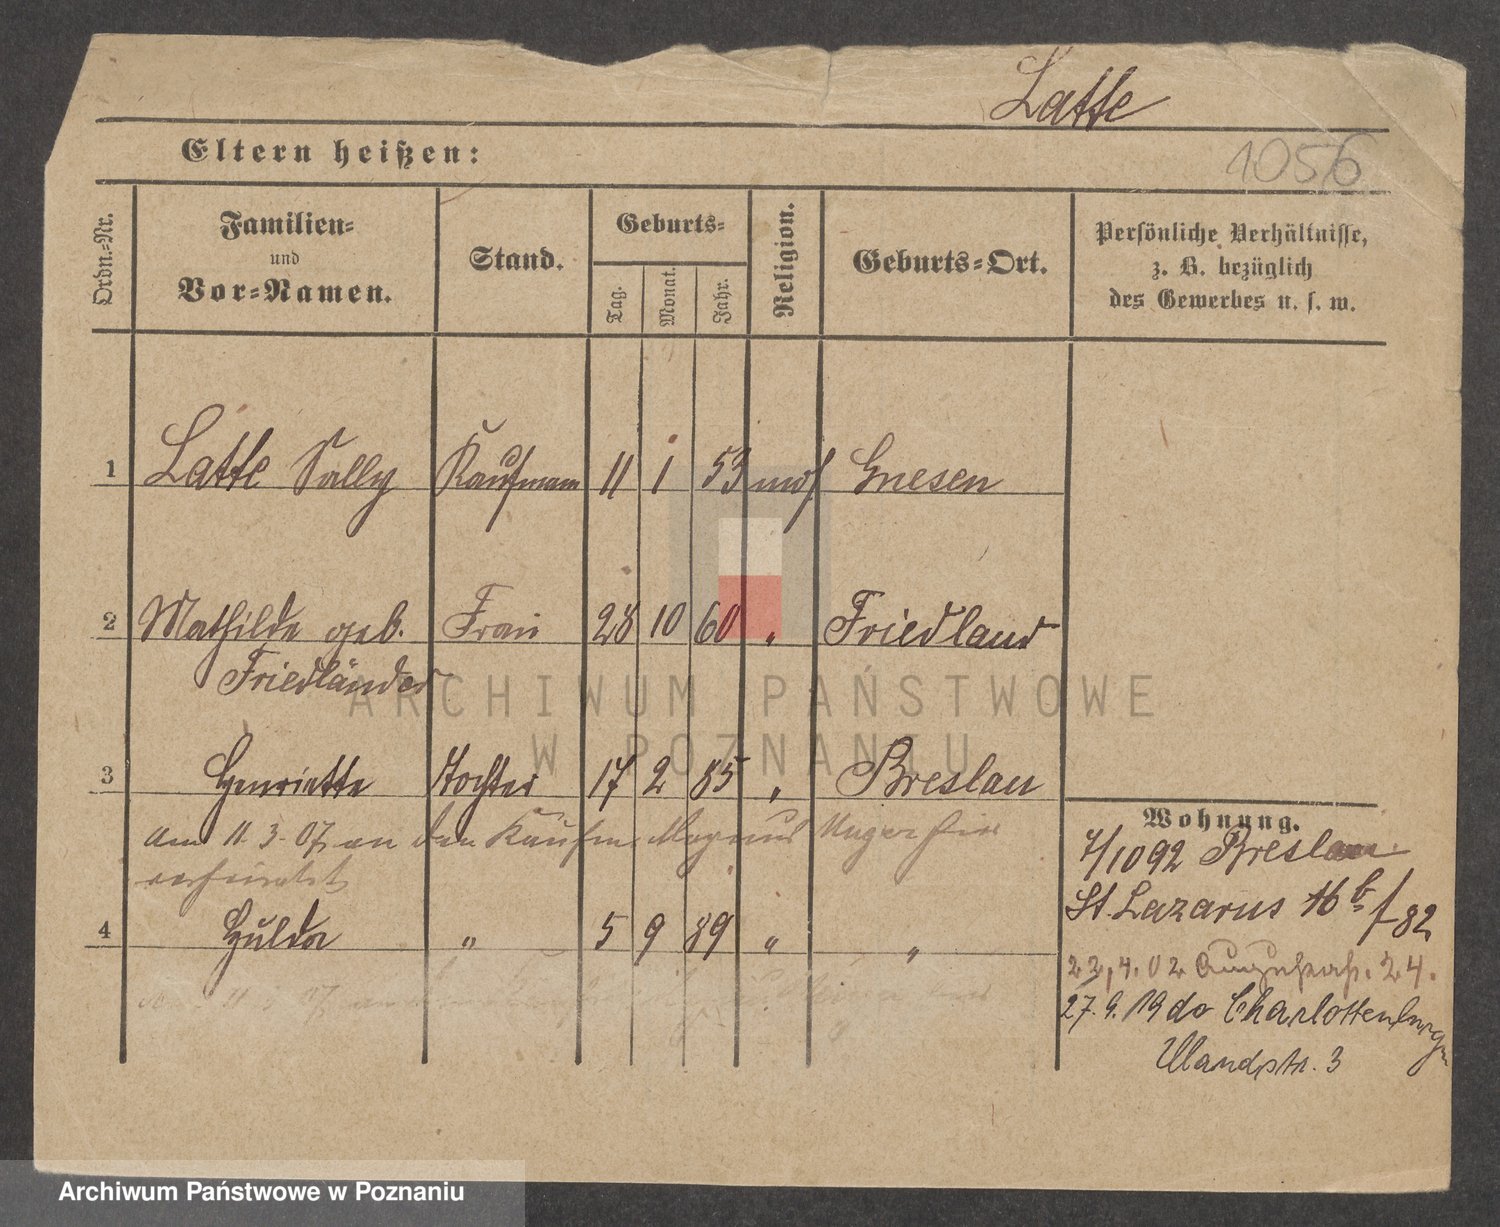 Latte
Eltern heißen:
1056
Ordn.-Nr.
Familien-
und
Vor-Namen.
Stand.
Geburts-
Tag.
Monat.
Jahr.
Religion.
Geburts-Ort.
Persönliche Verhältnisse,
z. B. bezüglich
des Gewerbes u. s. w.
1 Latte Sally Kaufmann 11 1 53 mos. Gnesen
2 Mathilde geb. Frau 28 10 60 " Friedland
Friedländer
3 Henriette Tochter 17 2 85 " Breslau
am 11.3.07 an den Kaufm. Magnus Unger hier
verheiratet
4 Hulda " 5 9 89 " "
Wohnung.
7/10 92 Breslau
St. Lazarus 16b f 82
22,4.02 Augustastr. 24.
27.9.19 do Charlottenburg
Ulandstr. 3
ARCHIWUM PAŃSTWOWE
W POZNANIU
Archiwum Państwowe w Poznaniu